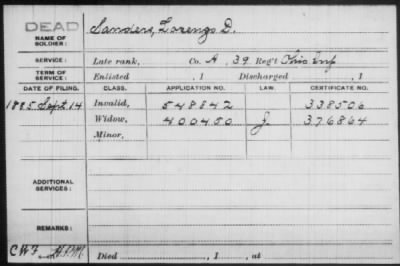 DEAD
NAME OF SOLDIER: Sanders, Lorenzo D.
SERVICE: Late rank, Co. A, 39 Reg't Ohio Inf
TERM OF SERVICE: Enlisted , 1 Discharged , 1
DATE OF FILING. CLASS. APPLICATION NO. LAW. CERTIFICATE NO.
1885 Sept. 14 Invalid, 548842 338506
Widow, 400450 J. 376864
Minor,
ADDITIONAL SERVICES:
REMARKS:
Died , 1 , at